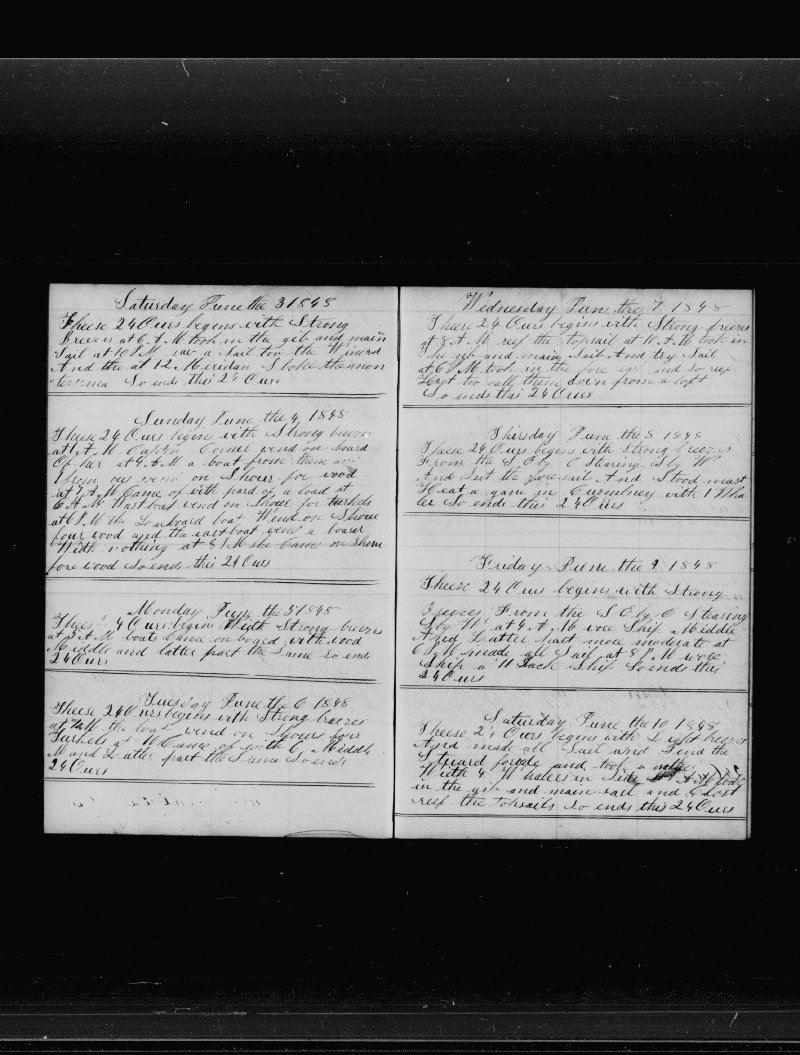 Saturday June the 3 1848
Theese 24 Ours begins with Strong
Breezes at 6 A M took in the gib and main
Sail at 10 P M saw a Sail too the
And the at 12 Meridan Spoke the mon
So ends this 24 Ours
Sunday June the 4 1848
Theese 24 Ours begins with Strong breezes
at 1 A M Captn Corner wend on board
Of her at 4 A M a boat from them and
1 from our wend on Shour for wood
at 7 A M Came of with pard of a load at
6 A M Wast boat wend on Shour for turkels
at 6 P M the La aboard boat Wend on Shour
four wood and the wast boat wend a board
With nothing at 8 P M she Came on Shour
fore wood So ends this 24 Ours
Monday June the 5 1848
24 Ours begins Widh Strong breezes
at 5 A M boats Came on boged with wood
Middle and latter part the Same So ends
24 Ours
Tuesday June the 6 1848
Theese 24 Ours begins with Strong breezes
at 7 A M the boat wend on Shour four
Turkels at M Came of with 6 Middle
M and Latter part the Same So ends
24 Ours
Wednesday June the 7 1848
Theese 24 Ours begins with Strong breezes
at 8 A M reef the topsail at 10 A M took in
The gib and main Sail And try Sail
at 6 P M took in the fore and so
Heat too call them down from a loft
So ends this 24 Ours
Thirsday June the 8 1848
Theese 24 Ours begins with Strong breezes
From the S E by E Stearing S by W
And Sut the foresail And Stood mast
Heat a gain in Cumbney with 1 Wha
ler So ends this 24 Ours
Friday June the 9 1848
Theese 24 Ours begins with Strong
Breezes From the S E by E Stearing
S by W at 4 A M woe Ship Middle
And Latter part more moderate at
6 P M made all Sail at 8 P M wore
Ship a 11 Back Ship So ends this
24 Ours
Saturday June the 10 1848
Theese 24 Ours begins with Light breezes
And made all Sail and Send the
Stuard forade and took a
Widh 4 Whalers in Site A M took
in the gib and main sail and Clost
reef the topsails So ends this 24 Ours